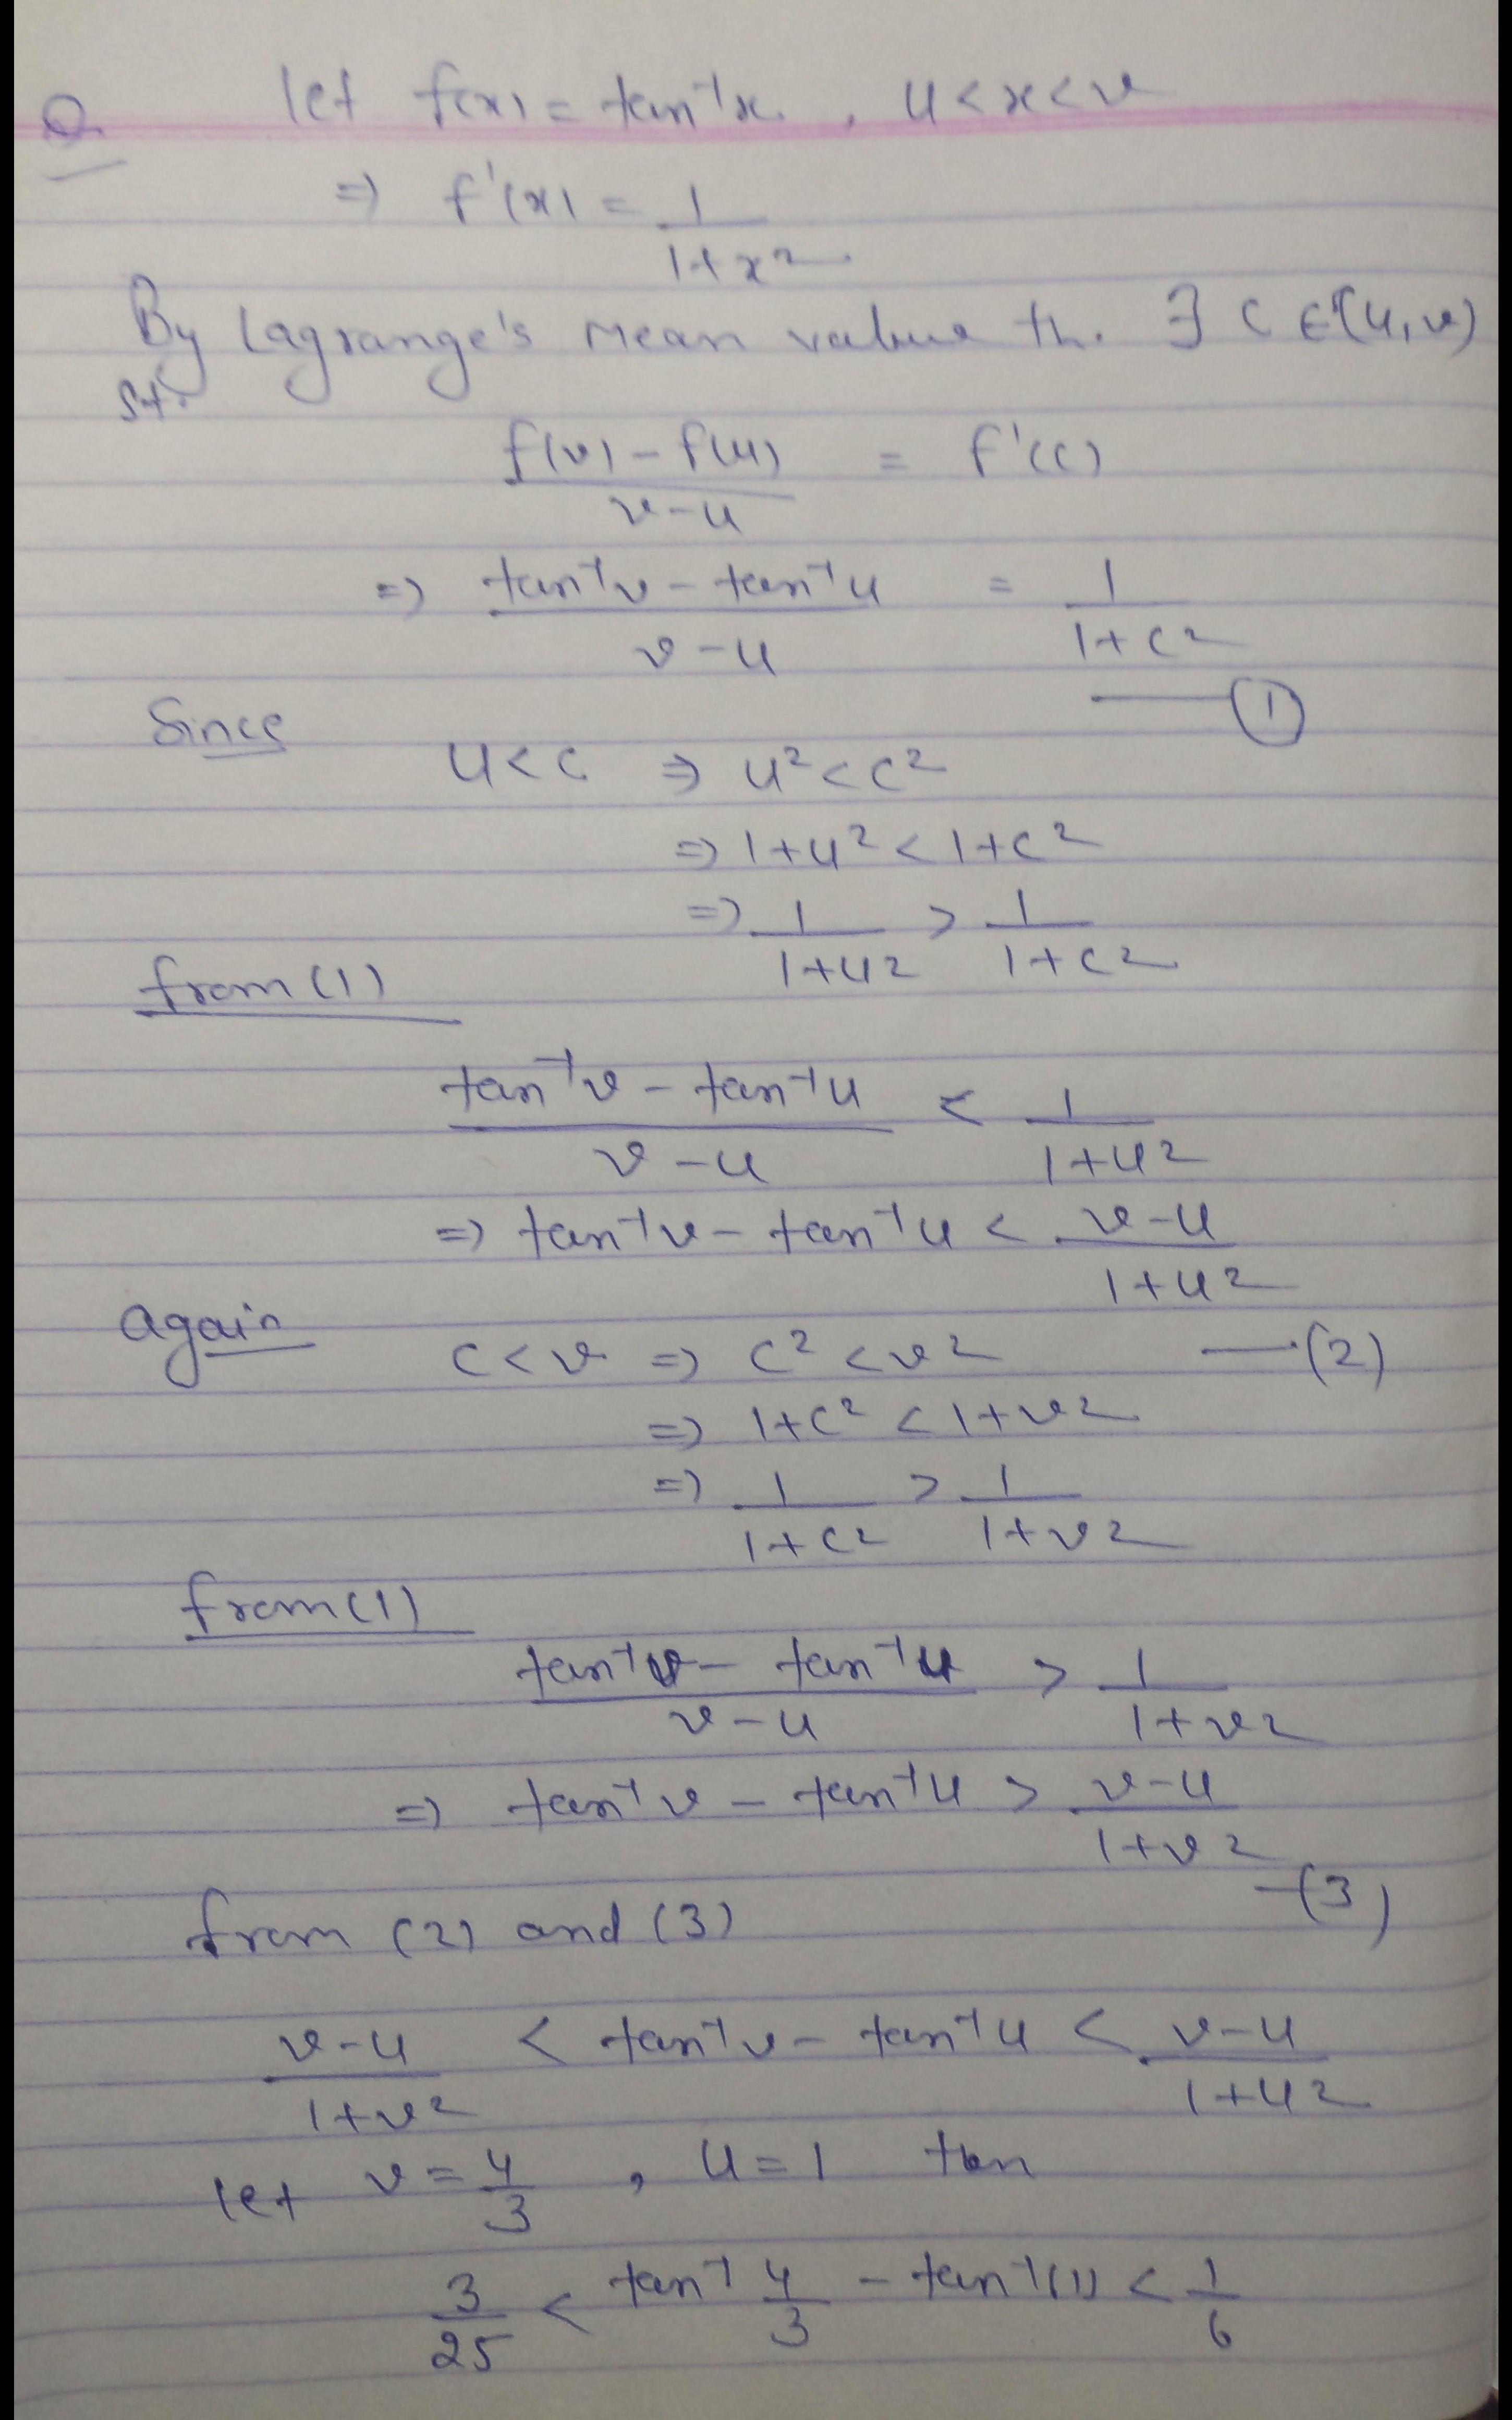 Q. let f(x) = tan⁻¹x , u < x < v
⇒ f'(x) = 1/(1+x²)
By Lagrange's Mean value th. ∃ c ∈ (u, v)
st.
(f(v) - f(u))/(v-u) = f'(c)
⇒ (tan⁻¹v - tan⁻¹u)/(v-u) = 1/(1+c²)
— ①
Since
u < c ⇒ u² < c²
⇒ 1+u² < 1+c²
⇒ 1/(1+u²) > 1/(1+c²)
from (1)
(tan⁻¹v - tan⁻¹u)/(v-u) < 1/(1+u²)
⇒ tan⁻¹v - tan⁻¹u < (v-u)/(1+u²)
again c < v ⇒ c² < v² —(2)
⇒ 1+c² < 1+v²
⇒ 1/(1+c²) > 1/(1+v²)
from (1)
(tan⁻¹v - tan⁻¹u)/(v-u) > 1/(1+v²)
⇒ tan⁻¹v - tan⁻¹u > (v-u)/(1+v²)
—(3)
from (2) and (3)
(v-u)/(1+v²) < tan⁻¹v - tan⁻¹u < (v-u)/(1+u²)
let v = 4/3 , u = 1 ten
3/25 < tan⁻¹ 4/3 - tan⁻¹(1) < 1/6